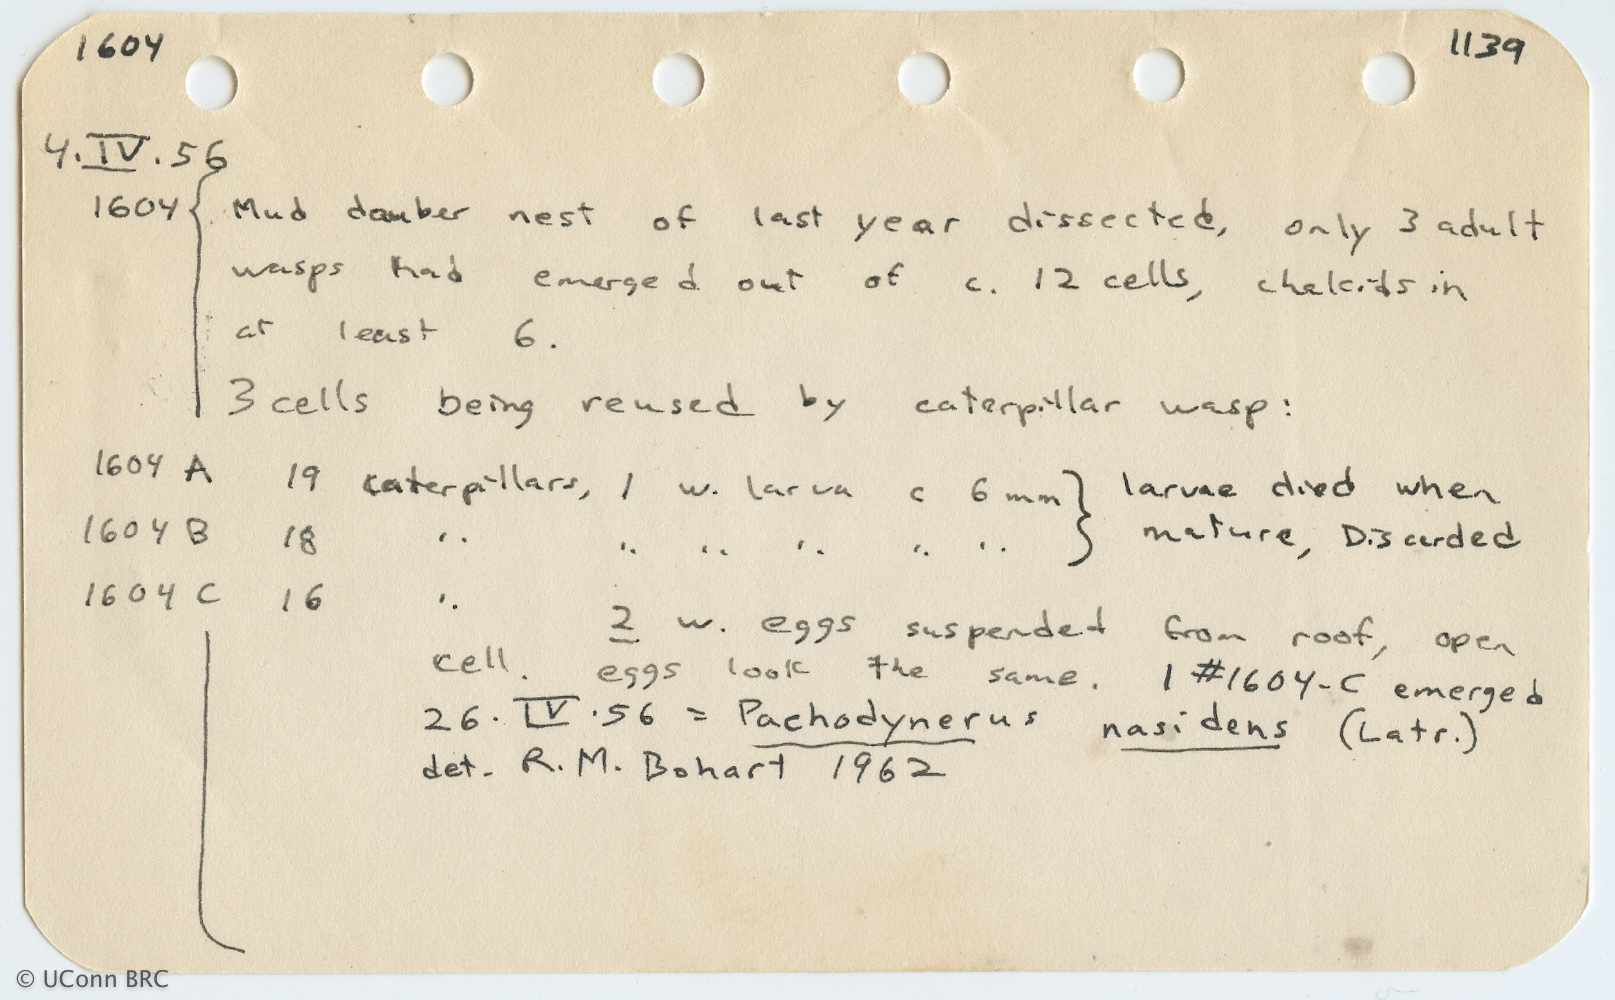 1604 1139
4.IV.56
1604 { Mud dauber nest of last year dissected, only 3 adult
wasps had emerged out of c. 12 cells, chalcids in
at least 6.
3 cells being reused by caterpillar wasp:
1604 A 19 caterpillars, 1 w. larva c 6 mm } larvae died when
1604 B 18 " " " " " " mature, Discarded
1604 C 16 " 2 w. eggs suspended from roof, open
cell. eggs look the same. 1 #1604-C emerged
26.IV.56 = Pachodynerus nasidens (Latr.)
det. R.M. Bohart 1962
© UConn BRC